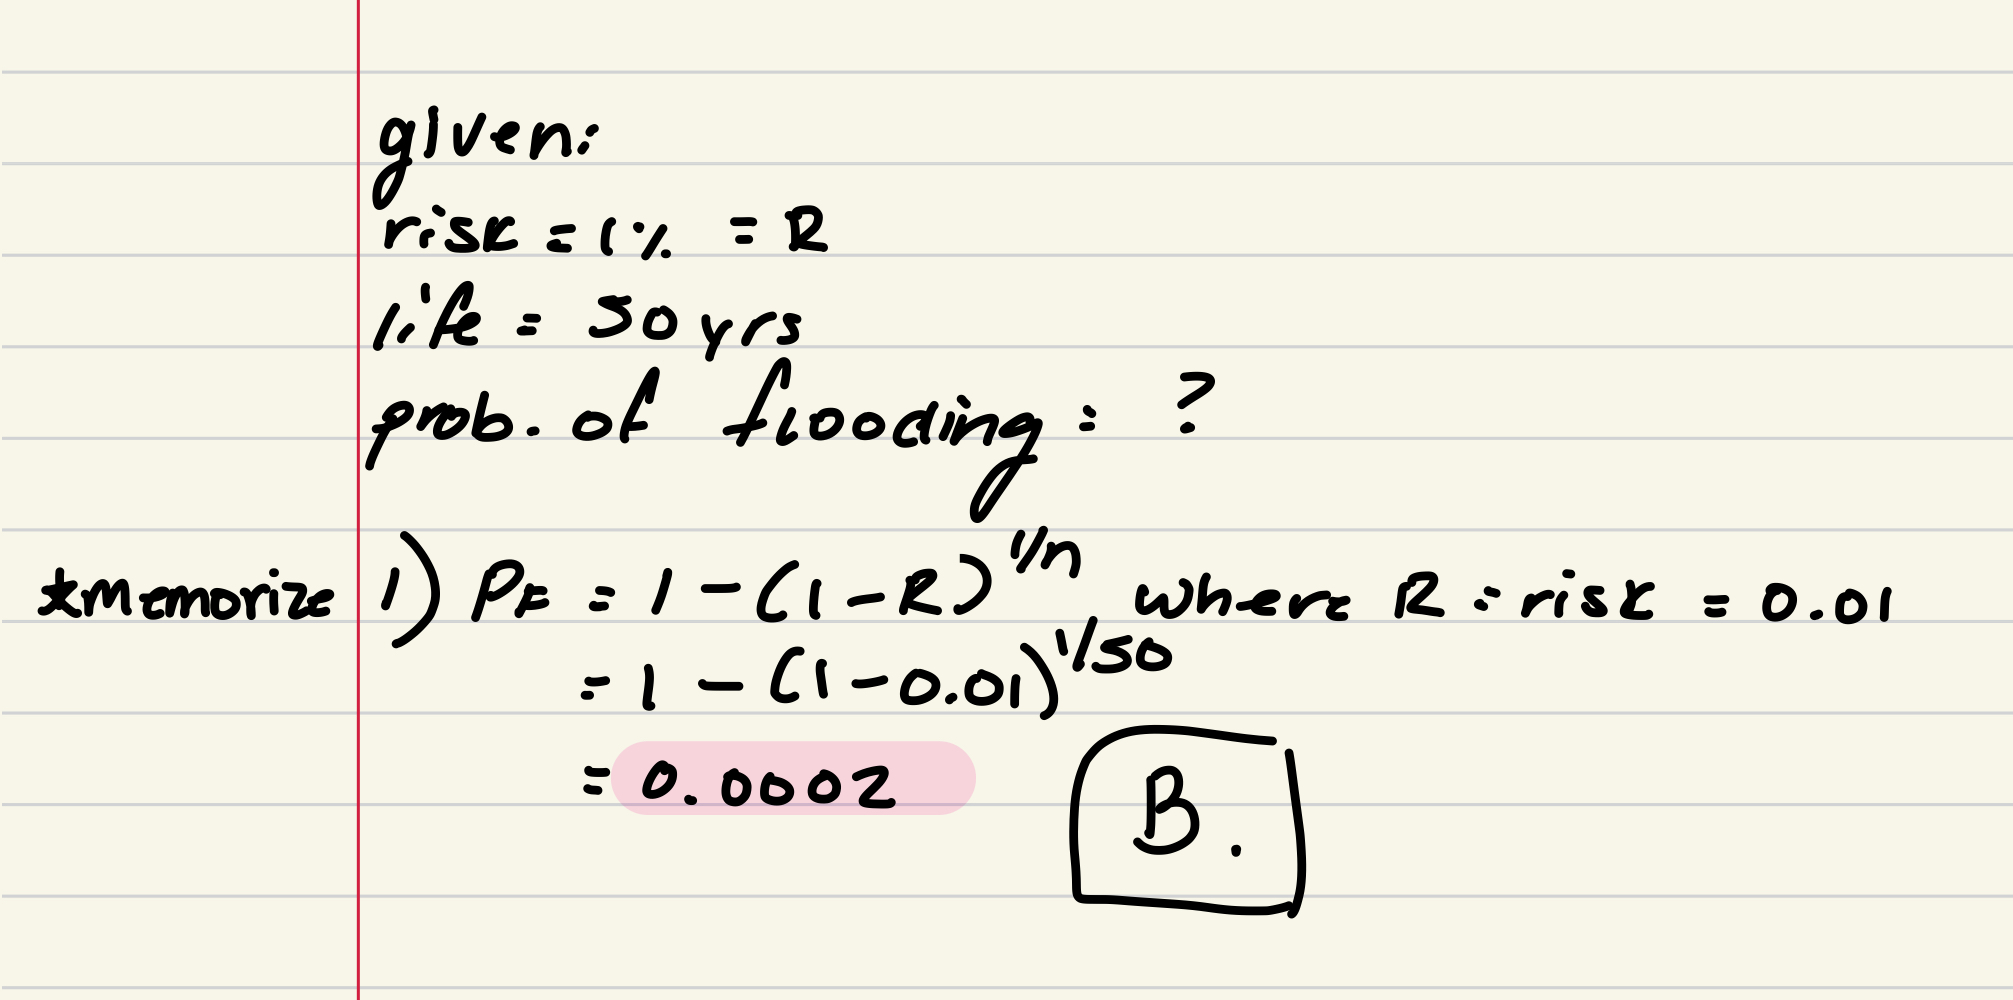 given:
risk = 1% = R
life = 50 yrs
prob. of flooding = ?
*memorize 1) PF = 1 - (1 - R)^1/n where R = risk = 0.01
= 1 - (1 - 0.01)^1/50
= 0.0002
B.